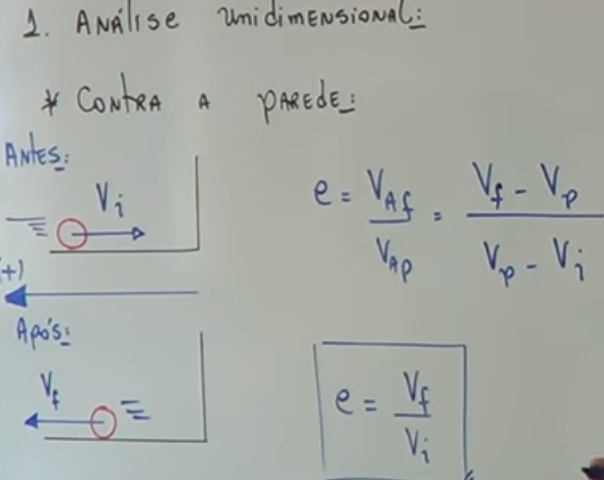 1. Análise unidimensional:
* Contra a parede:
Antes:
Vi
e = VAf / VAp = Vf - Vp / Vp - Vi
(+)
Após:
Vf
e = Vf / Vi